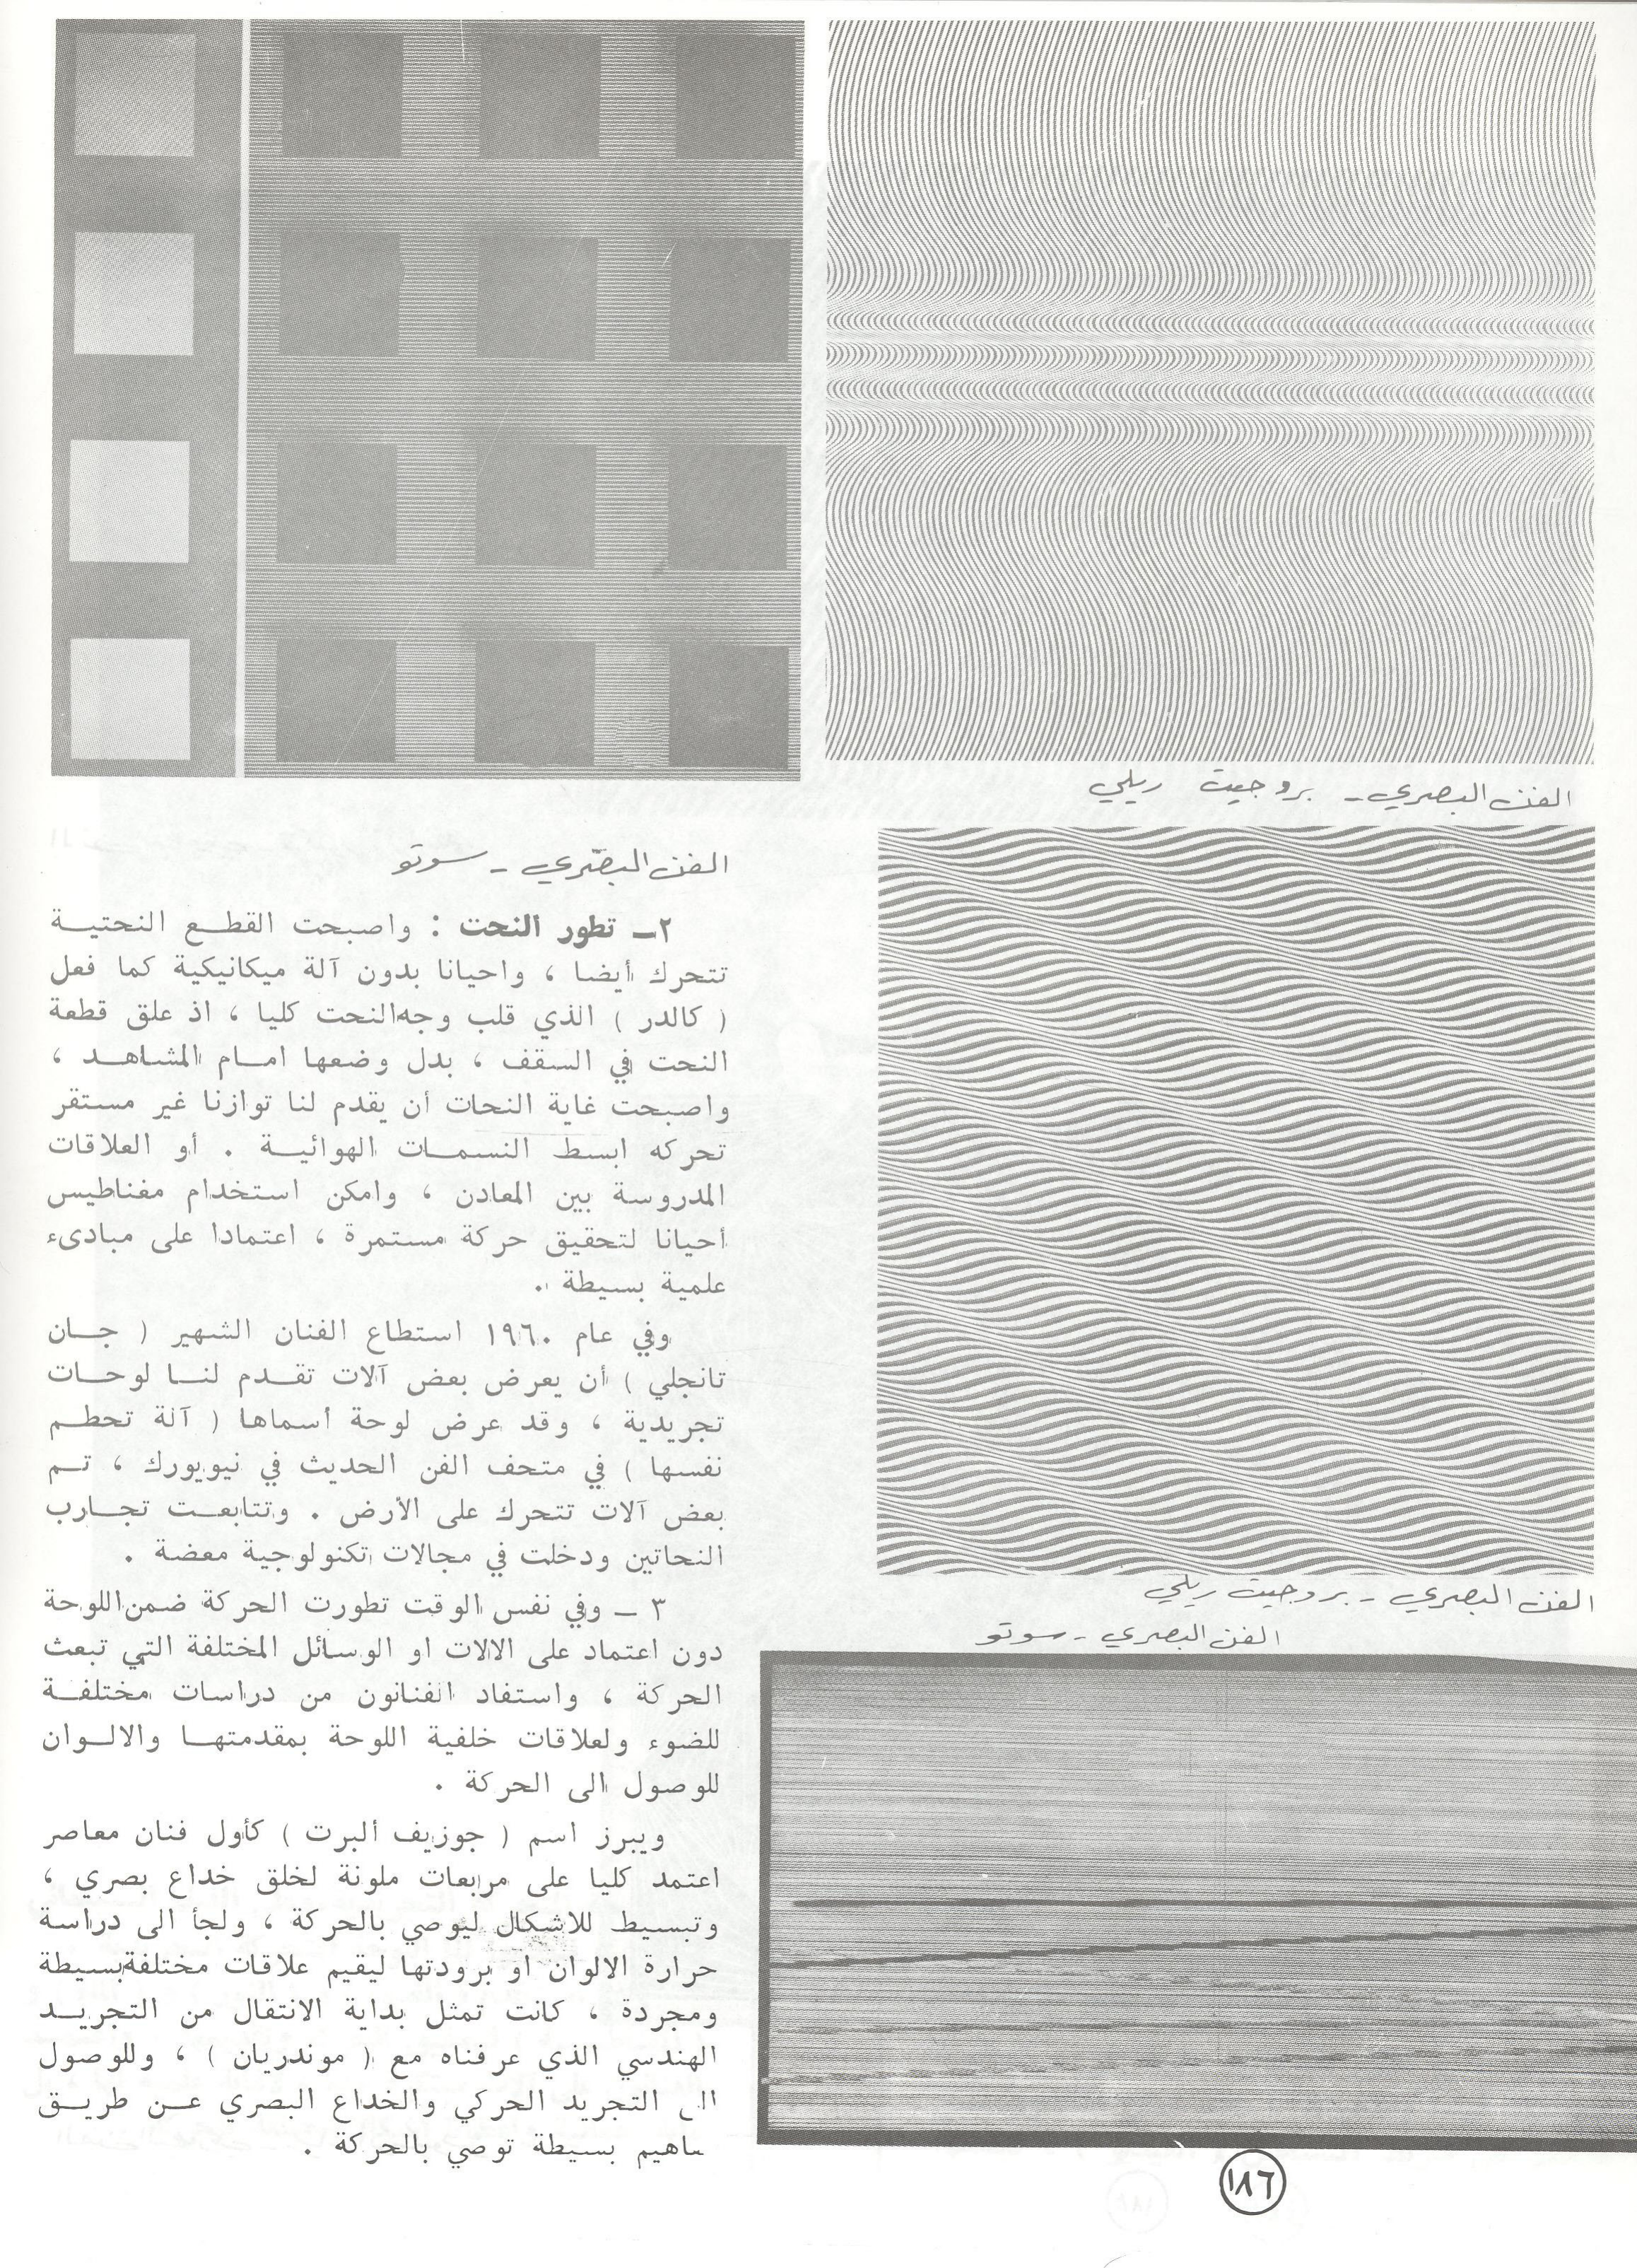 الفن البصري - بروجيت ريلي
الفن البصري - سوتو
٢ـ تطور النحت : واصبحت القطـع النحتيـة
تتحرك أيضا ، واحيانا بدون آلة ميكانيكية كما فعل
( كالدر ) الذي قلب وجه النحت كليا ، اذ علق قطعة
النحت في السقف ، بدل وضعها امـام المشاهـد ،
واصبحت غاية النحات أن يقدم لنا توازنا غير مستقر
تحركه ابسط النسمـات الهوائيـة . أو العلاقات
المدروسة بين المعادن ، وامكن استخدام مغناطيس
أحيانا لتحقيق حركة مستمرة ، اعتمادا على مبادىء
علمية بسيطة .
وفي عام ١٩٦٠ استطاع الفنان الشهير ( جـان
تانجلي ) أن يعرض بعض آلات تقـدم لنـا لوحـات
تجريدية ، وقد عرض لوحة أسماها ( آلة تحطـم
نفسها ) في متحف الفن الحديث في نيويورك ، تـم
بعض آلات تتحرك على الأرض . وتتابعـت تجـارب
النحاتين ودخلت في مجالات تكنولوجية معضة .
٣ ـ وفي نفس الوقت تطورت الحركة ضمن اللوحة
دون اعتماد على الالات او الوسائل المختلفة التي تبعث
الحركة ، واستفاد الفنانون من دراسات مختلفـة
للضوء ولعلاقات خلفية اللوحة بمقدمتهـا والالـوان
للوصول الى الحركة .
ويبرز اسم ( جوزيف ألبرت ) كأول فنان معاصر
اعتمد كليا على مربعات ملونة لخلق خداع بصري ،
وتبسيط للاشكال ليوصي بالحركة ، ولجأ الى دراسة
حرارة الالوان او برودتها ليقيم علاقات مختلفة بسيطة
ومجردة ، كانت تمثل بداية الانتقال من التجريـد
الهندسي الذي عرفناه مع ( موندريان ) ، وللوصول
التجريد الحركي والخداع البصري عـن طريـق
بسيطة توصي بالحركة .
الفن البصري - بروجيت ريلي
الفن البصري - سوتو
١٨٦